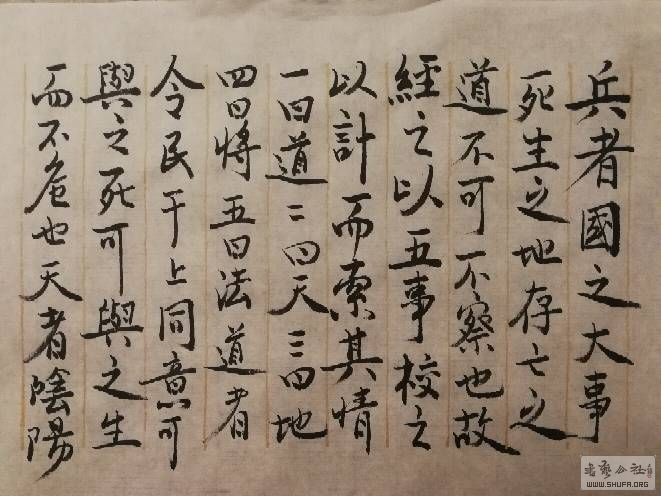 兵者國之大事
死生之地存亡之
道不可不察也故
經之以五事校之
以計而索其情
一曰道二曰天三曰地
四曰將五曰法道者
令民于上同意可
與之死可與之生
而不危也天者陰陽
WWW.SHUFA.ORG